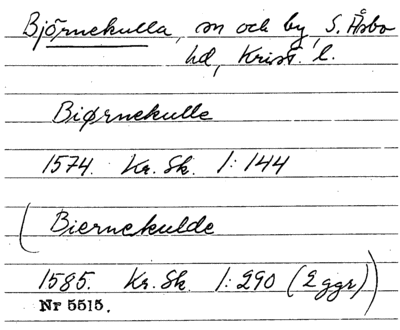 Björnekulla, sn och by, S. Åsbo
hd, Krist. l.
Biørnekulle
1574. Kr. Sk. 1:144
(Biernekulde
1585. Kr. Sk. 1:290 (2 ggr))
Nr 5515.